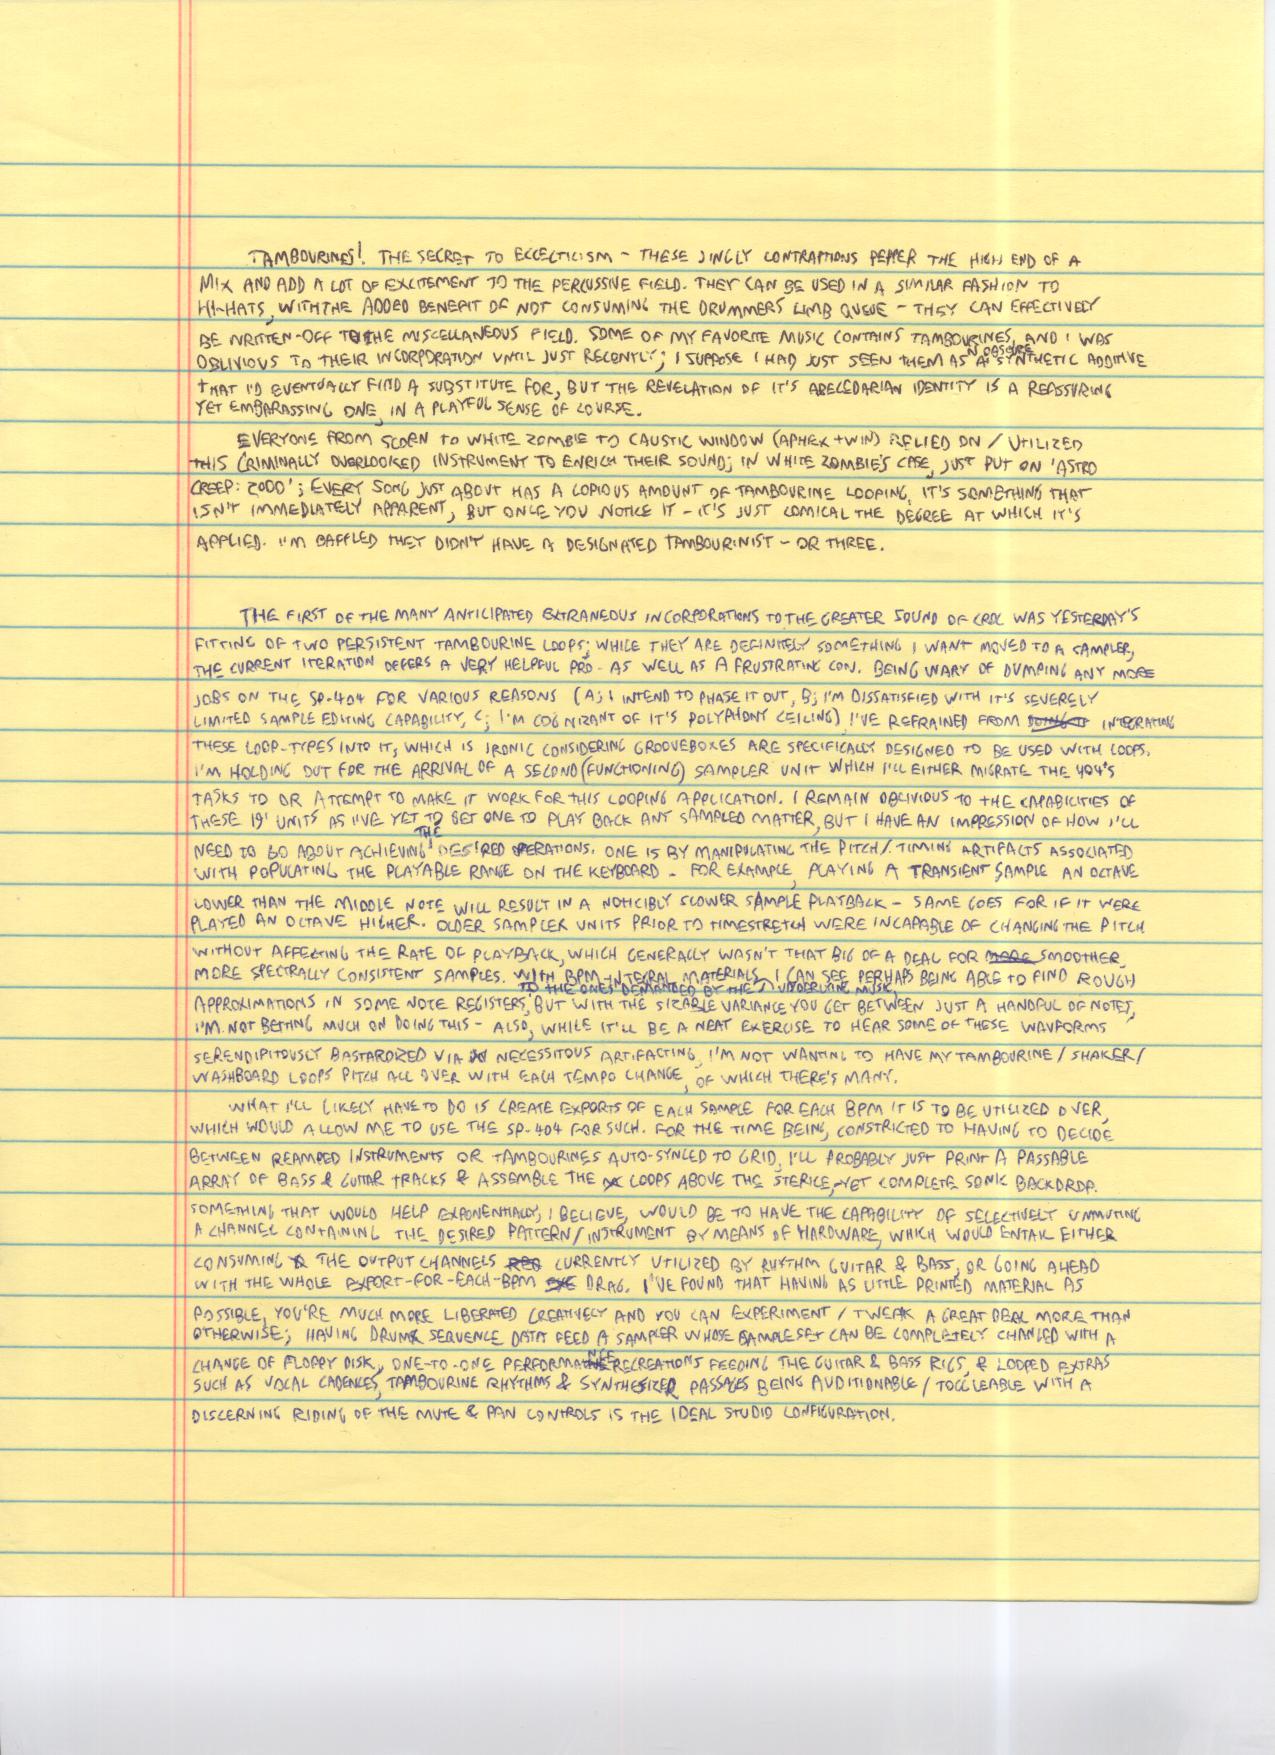 TAMBOURINES! THE SECRET TO ECCELTICISM - THESE JINGLY CONTRAPTIONS PEPPER THE HIGH END OF A
MIX AND ADD A LOT OF EXCITEMENT TO THE PERCUSSIVE FIELD. THEY CAN BE USED IN A SIMILAR FASHION TO
HI-HATS, WITH THE ADDED BENEFIT OF NOT CONSUMING THE DRUMMERS LIMB QUEUE - THEY CAN EFFECTIVELY
BE WRITTEN-OFF TO THE MISCELLANEOUS FIELD. SOME OF MY FAVORITE MUSIC CONTAINS TAMBOURINES, AND I WAS
OBLIVIOUS TO THEIR INCORPORATION UNTIL JUST RECENTLY; I SUPPOSE I HAD JUST SEEN THEM AS AN OBSCURE SYNTHETIC ADDITIVE
THAT I'D EVENTUALLY FIND A SUBSTITUTE FOR, BUT THE REVELATION OF IT'S ABECEDARIAN IDENTITY IS A REASSURING
YET EMBARASSING ONE, IN A PLAYFUL SENSE OF COURSE.
EVERYONE FROM SCORN TO WHITE ZOMBIE TO CAUSTIC WINDOW (APHEX TWIN) RELIED ON / UTILIZED
THIS CRIMINALLY OVERLOOKED INSTRUMENT TO ENRICH THEIR SOUND; IN WHITE ZOMBIE'S CASE, JUST PUT ON 'ASTRO
CREEP: 2000'; EVERY SONG JUST ABOUT HAS A COPIOUS AMOUNT OF TAMBOURINE LOOPING. IT'S SOMETHING THAT
ISN'T IMMEDIATELY APPARENT, BUT ONCE YOU NOTICE IT - IT'S JUST COMICAL THE DEGREE AT WHICH IT'S
APPLIED. I'M BAFFLED THEY DIDN'T HAVE A DESIGNATED TAMBOURINIST - OR THREE.
THE FIRST OF THE MANY ANTICIPATED EXTRANEOUS INCORPORATIONS TO THE GREATER SOUND OF CRDL WAS YESTERDAY'S
FITTING OF TWO PERSISTENT TAMBOURINE LOOPS; WHILE THEY ARE DEFINITELY SOMETHING I WANT MOVED TO A SAMPLER,
THE CURRENT ITERATION OFFERS A VERY HELPFUL PRO - AS WELL AS A FRUSTRATING CON. BEING WARY OF DUMPING ANY MORE
JOBS ON THE SP-404 FOR VARIOUS REASONS (A; I INTEND TO PHASE IT OUT, B; I'M DISSATISFIED WITH IT'S SEVERELY
LIMITED SAMPLE EDITING CAPABILITY, C; I'M COGNIZANT OF IT'S POLYPHONY CEILING) I'VE REFRAINED FROM INTEGRATING
THESE LOOP-TYPES INTO IT, WHICH IS IRONIC CONSIDERING GROOVEBOXES ARE SPECIFICALLY DESIGNED TO BE USED WITH LOOPS.
I'M HOLDING OUT FOR THE ARRIVAL OF A SECOND (FUNCTIONING) SAMPLER UNIT WHICH I'LL EITHER MIGRATE THE 404'S
TASKS TO OR ATTEMPT TO MAKE IT WORK FOR THIS LOOPING APPLICATION. I REMAIN OBLIVIOUS TO THE CAPABILITIES OF
THESE 19' UNITS AS I'VE YET TO GET ONE TO PLAY BACK ANY SAMPLED MATTER, BUT I HAVE AN IMPRESSION OF HOW I'LL
NEED TO GO ABOUT ACHIEVING THE DESIRED OPERATIONS. ONE IS BY MANIPULATING THE PITCH/TIMING ARTIFACTS ASSOCIATED
WITH POPULATING THE PLAYABLE RANGE ON THE KEYBOARD - FOR EXAMPLE, PLAYING A TRANSIENT SAMPLE AN OCTAVE
LOWER THAN THE MIDDLE NOTE WILL RESULT IN A NOTICIBLY SLOWER SAMPLE PLAYBACK - SAME GOES FOR IF IT WERE
PLAYED AN OCTAVE HIGHER. OLDER SAMPLER UNITS PRIOR TO TIMESTRETCH WERE INCAPABLE OF CHANGING THE PITCH
WITHOUT AFFECTING THE RATE OF PLAYBACK, WHICH GENERALLY WASN'T THAT BIG OF A DEAL FOR SMOOTHER,
MORE SPECTRALLY CONSISTENT SAMPLES. WITH BPM-INTEGRAL MATERIALS, I CAN SEE PERHAPS BEING ABLE TO FIND ROUGH
APPROXIMATIONS IN SOME NOTE REGISTERS TO THE ONES DEMANDED BY THE UNDERLYING MUSIC, BUT WITH THE SIZABLE VARIANCE YOU GET BETWEEN JUST A HANDFUL OF NOTES,
I'M NOT BETTING MUCH ON DOING THIS - ALSO, WHILE IT'LL BE A NEAT EXERCISE TO HEAR SOME OF THESE WAVFORMS
SERENDIPITOUSLY BASTARDIZED VIA NECESSITOUS ARTIFACTING, I'M NOT WANTING TO HAVE MY TAMBOURINE / SHAKER /
WASHBOARD LOOPS PITCH ALL OVER WITH EACH TEMPO CHANGE, OF WHICH THERE'S MANY.
WHAT I'LL LIKELY HAVE TO DO IS CREATE EXPORTS OF EACH SAMPLE FOR EACH BPM IT IS TO BE UTILIZED OVER,
WHICH WOULD ALLOW ME TO USE THE SP-404 FOR SUCH. FOR THE TIME BEING, CONSTRICTED TO HAVING TO DECIDE
BETWEEN REAMPED INSTRUMENTS OR TAMBOURINES AUTO-SYNCED TO GRID, I'LL PROBABLY JUST PRINT A PASSABLE
ARRAY OF BASS & GUITAR TRACKS & ASSEMBLE THE LOOPS ABOVE THE STERILE, YET COMPLETE SONIC BACKDROP.
SOMETHING THAT WOULD HELP EXPONENTIALLY, I BELIEVE, WOULD BE TO HAVE THE CAPABILITY OF SELECTIVELY UNMUTING
A CHANNEL CONTAINING THE DESIRED PATTERN/INSTRUMENT BY MEANS OF HARDWARE, WHICH WOULD ENTAIL EITHER
CONSUMING THE OUTPUT CHANNELS CURRENTLY UTILIZED BY RHYTHM GUITAR & BASS, OR GOING AHEAD
WITH THE WHOLE EXPORT-FOR-EACH-BPM DRAG. I'VE FOUND THAT HAVING AS LITTLE PRINTED MATERIAL AS
POSSIBLE, YOU'RE MUCH MORE LIBERATED CREATIVELY AND YOU CAN EXPERIMENT / TWEAK A GREAT DEAL MORE THAN
OTHERWISE; HAVING DRUM SEQUENCE DATA FEED A SAMPLER WHOSE SAMPLESET CAN BE COMPLETELY CHANGED WITH A
CHANGE OF FLOPPY DISK, ONE-TO-ONE PERFORMANCE RECREATIONS FEEDING THE GUITAR & BASS RIGS, & LOOPED EXTRAS
SUCH AS VOCAL CADENCES, TAMBOURINE RHYTHMS & SYNTHESIZER PASSAGES BEING AUDITIONABLE / TOGGLEABLE WITH A
DISCERNING RIDING OF THE MUTE & PAN CONTROLS IS THE IDEAL STUDIO CONFIGURATION.